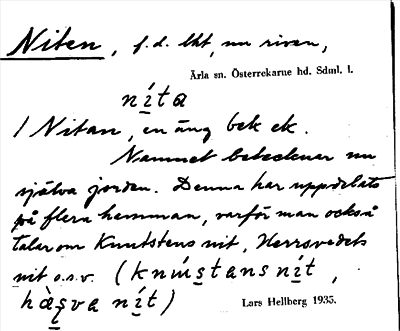 Niten, f.d. lht, nu riven,
Ärla sn. Österrekarne hd. Sdml. l.
níta
/ Nitan, en äng bek ek.
Namnet betecknar nu
själva jorden. Denna har uppdelats
på flera hemman, varför man också
talar om Knutstens nit, Herrsvedets
nit o.s.v. (knústans nít,
hàs̨va nít)
Lars Hellberg 1935.